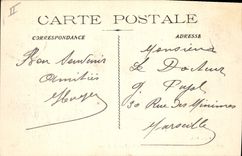 II
CARTE POSTALE
CORRESPONDANCE
ADRESSE
Bon Souvenir
Amitiés
Monsieur
Le Docteur
J. Pujol
30 Rue des Minimes
Marseille